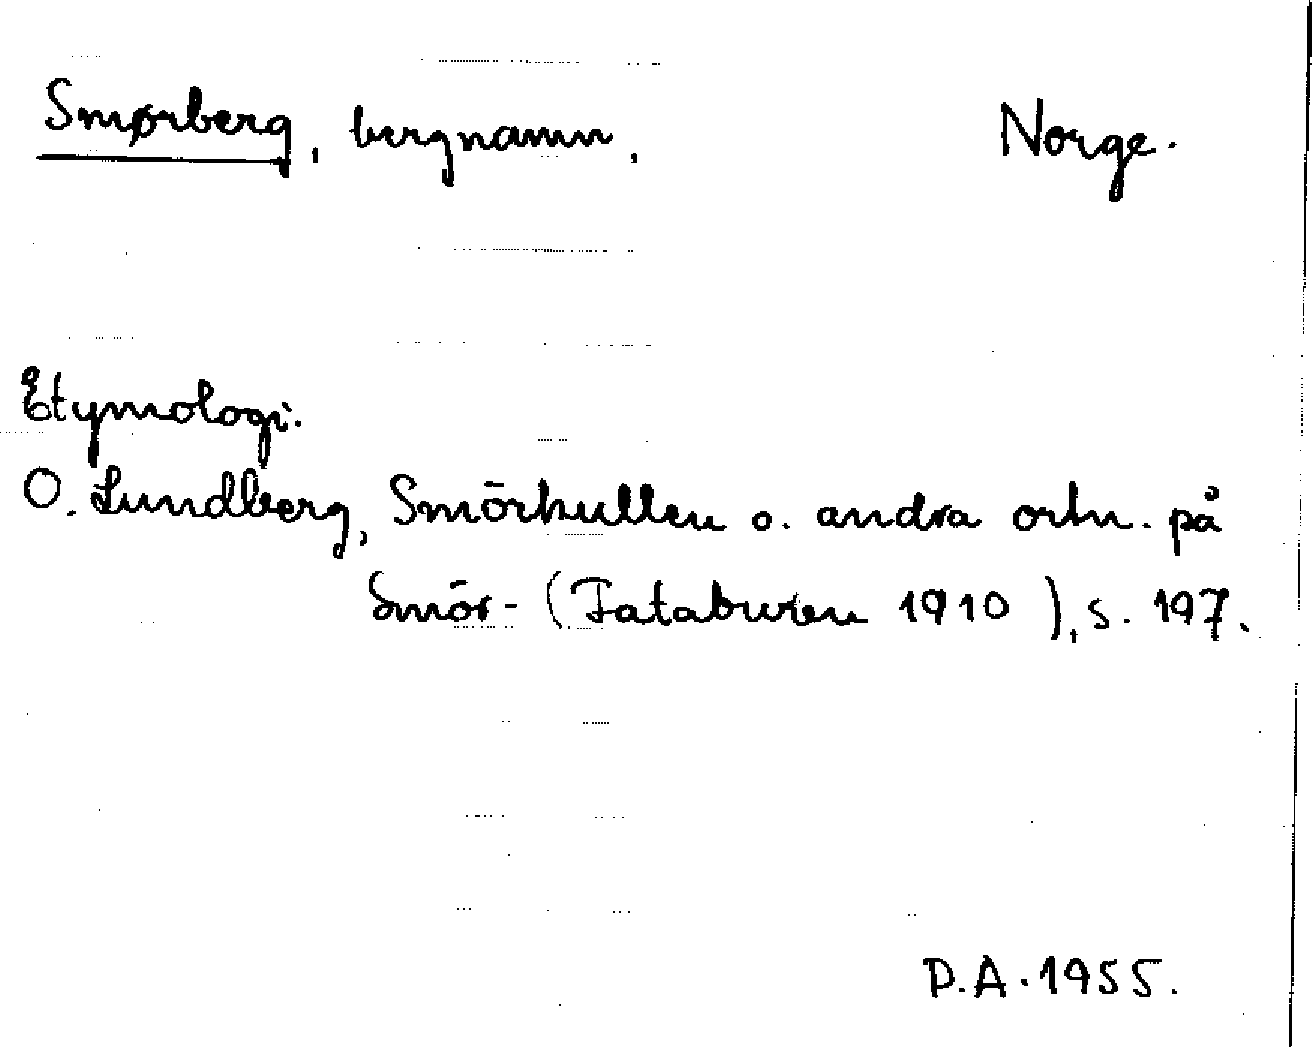 Smørberg, bergnamn. Norge.
Etymologi.
O. Lundberg, Smörkullen o. andra ortn. på
Smör- (Fataburen 1910), s. 197.
D.A. 1955.